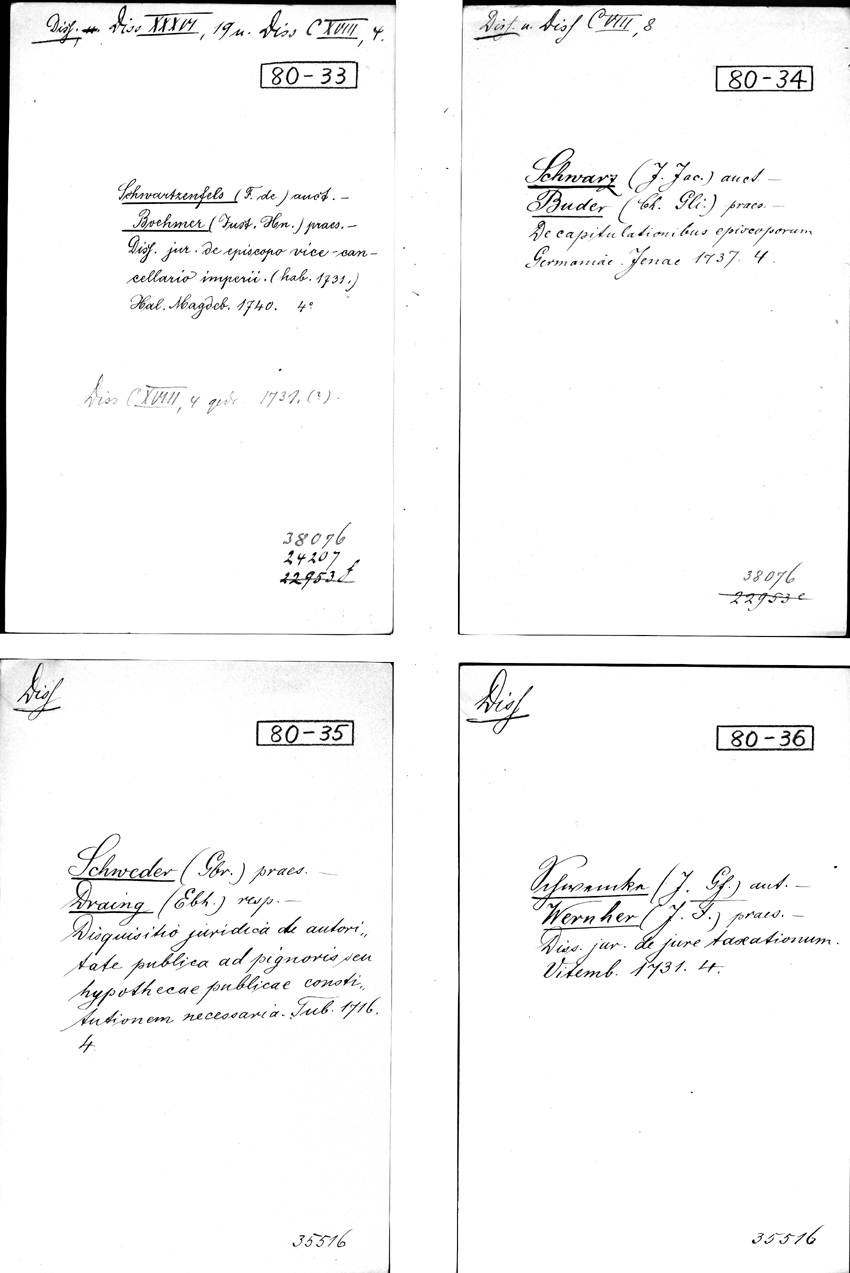 Diss. u. Diss XXXVI, 19 u. Diss C XVIII, 4.
80-33
Schwartzenfels (F. de) auct. —
Boehmer (Just. Hn.) praes. —
Diss. jur. de episcopo vice-can-
cellario imperii. (hab. 1731.)
Hal. Magdeb. 1740. 4°
Diss C XVIII, 4 gedr. 1731. (?).
38076
24207
22953 f
Diss. u. Diss C VIII, 8
80-34
Schwarz (J. Jac.) auct. —
Buder (Ch. Gli.) praes. —
De capitulationibus episcoporum
Germaniae. Jenae 1737. 4.
38076
22953 e
Diss
80-35
Schweder (Gbr.) praes. —
Draing (Ebh.) resp. —
Disquisitio juridica de autori„
tate publica ad pignoris seu
hypothecae publicae consti„
tutionem necessaria. Tub. 1716.
4.
35516
Diss
80-36
Schwemke (J. Gf.) aut. —
Wernher (J. ) praes. —
Diss. jur. de jure taxationum.
Vitemb. 1731. 4.
35516